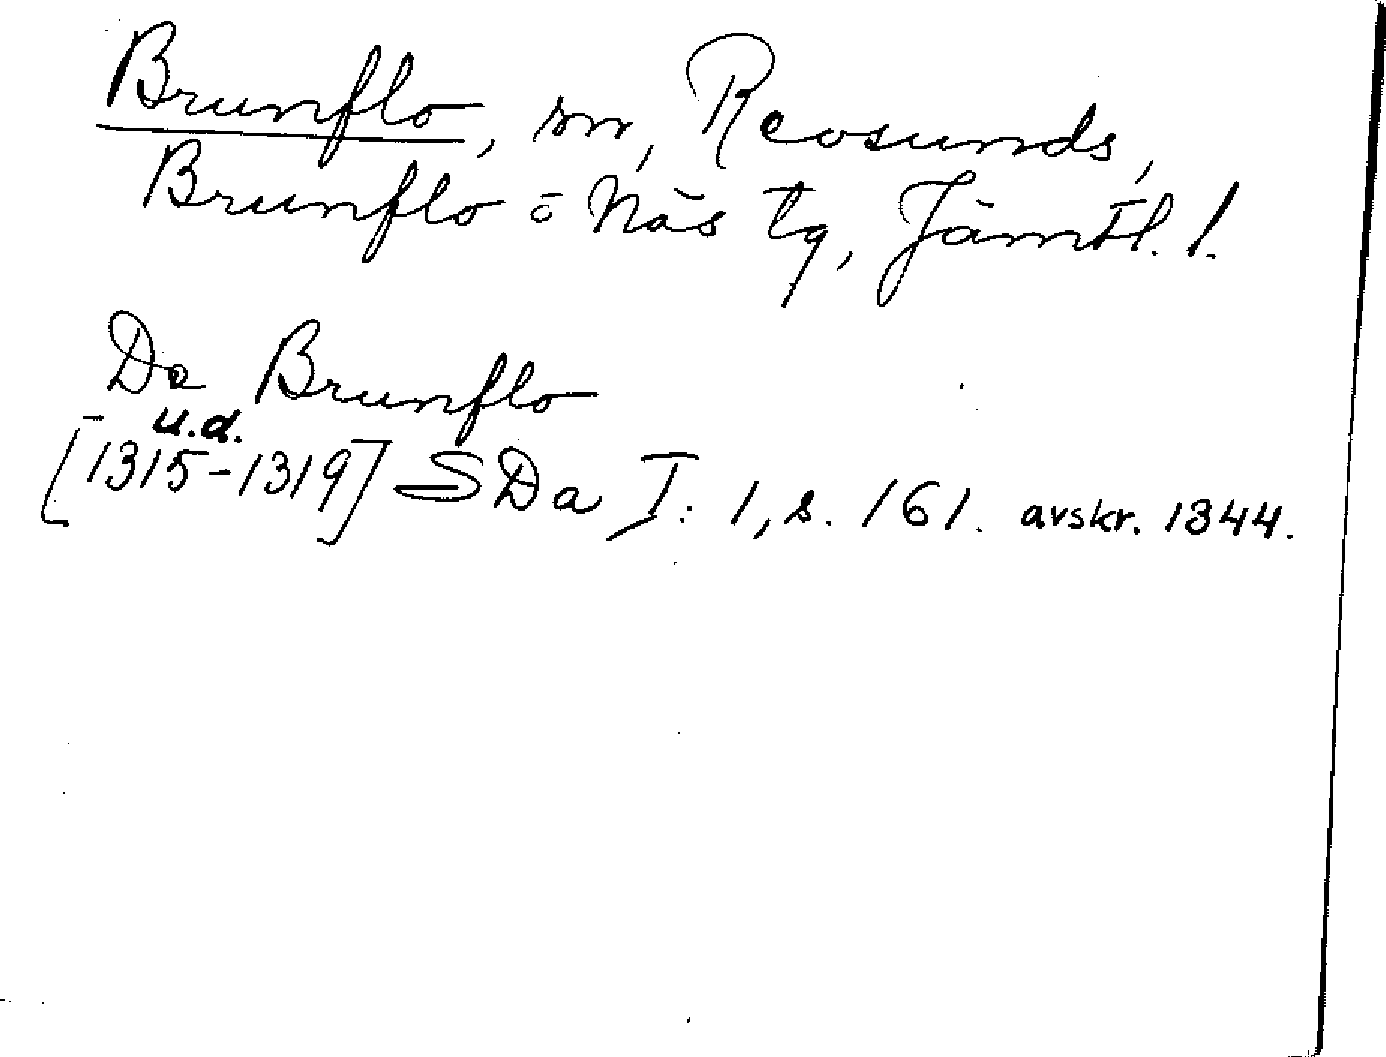 Brunflo, sn, Revsunds,
Brunflo o Näs tg, Jämtl. l.
De Brunflo
u.d.
[1315-1319] SDa I: 1, s. 161. avskr. 1344.